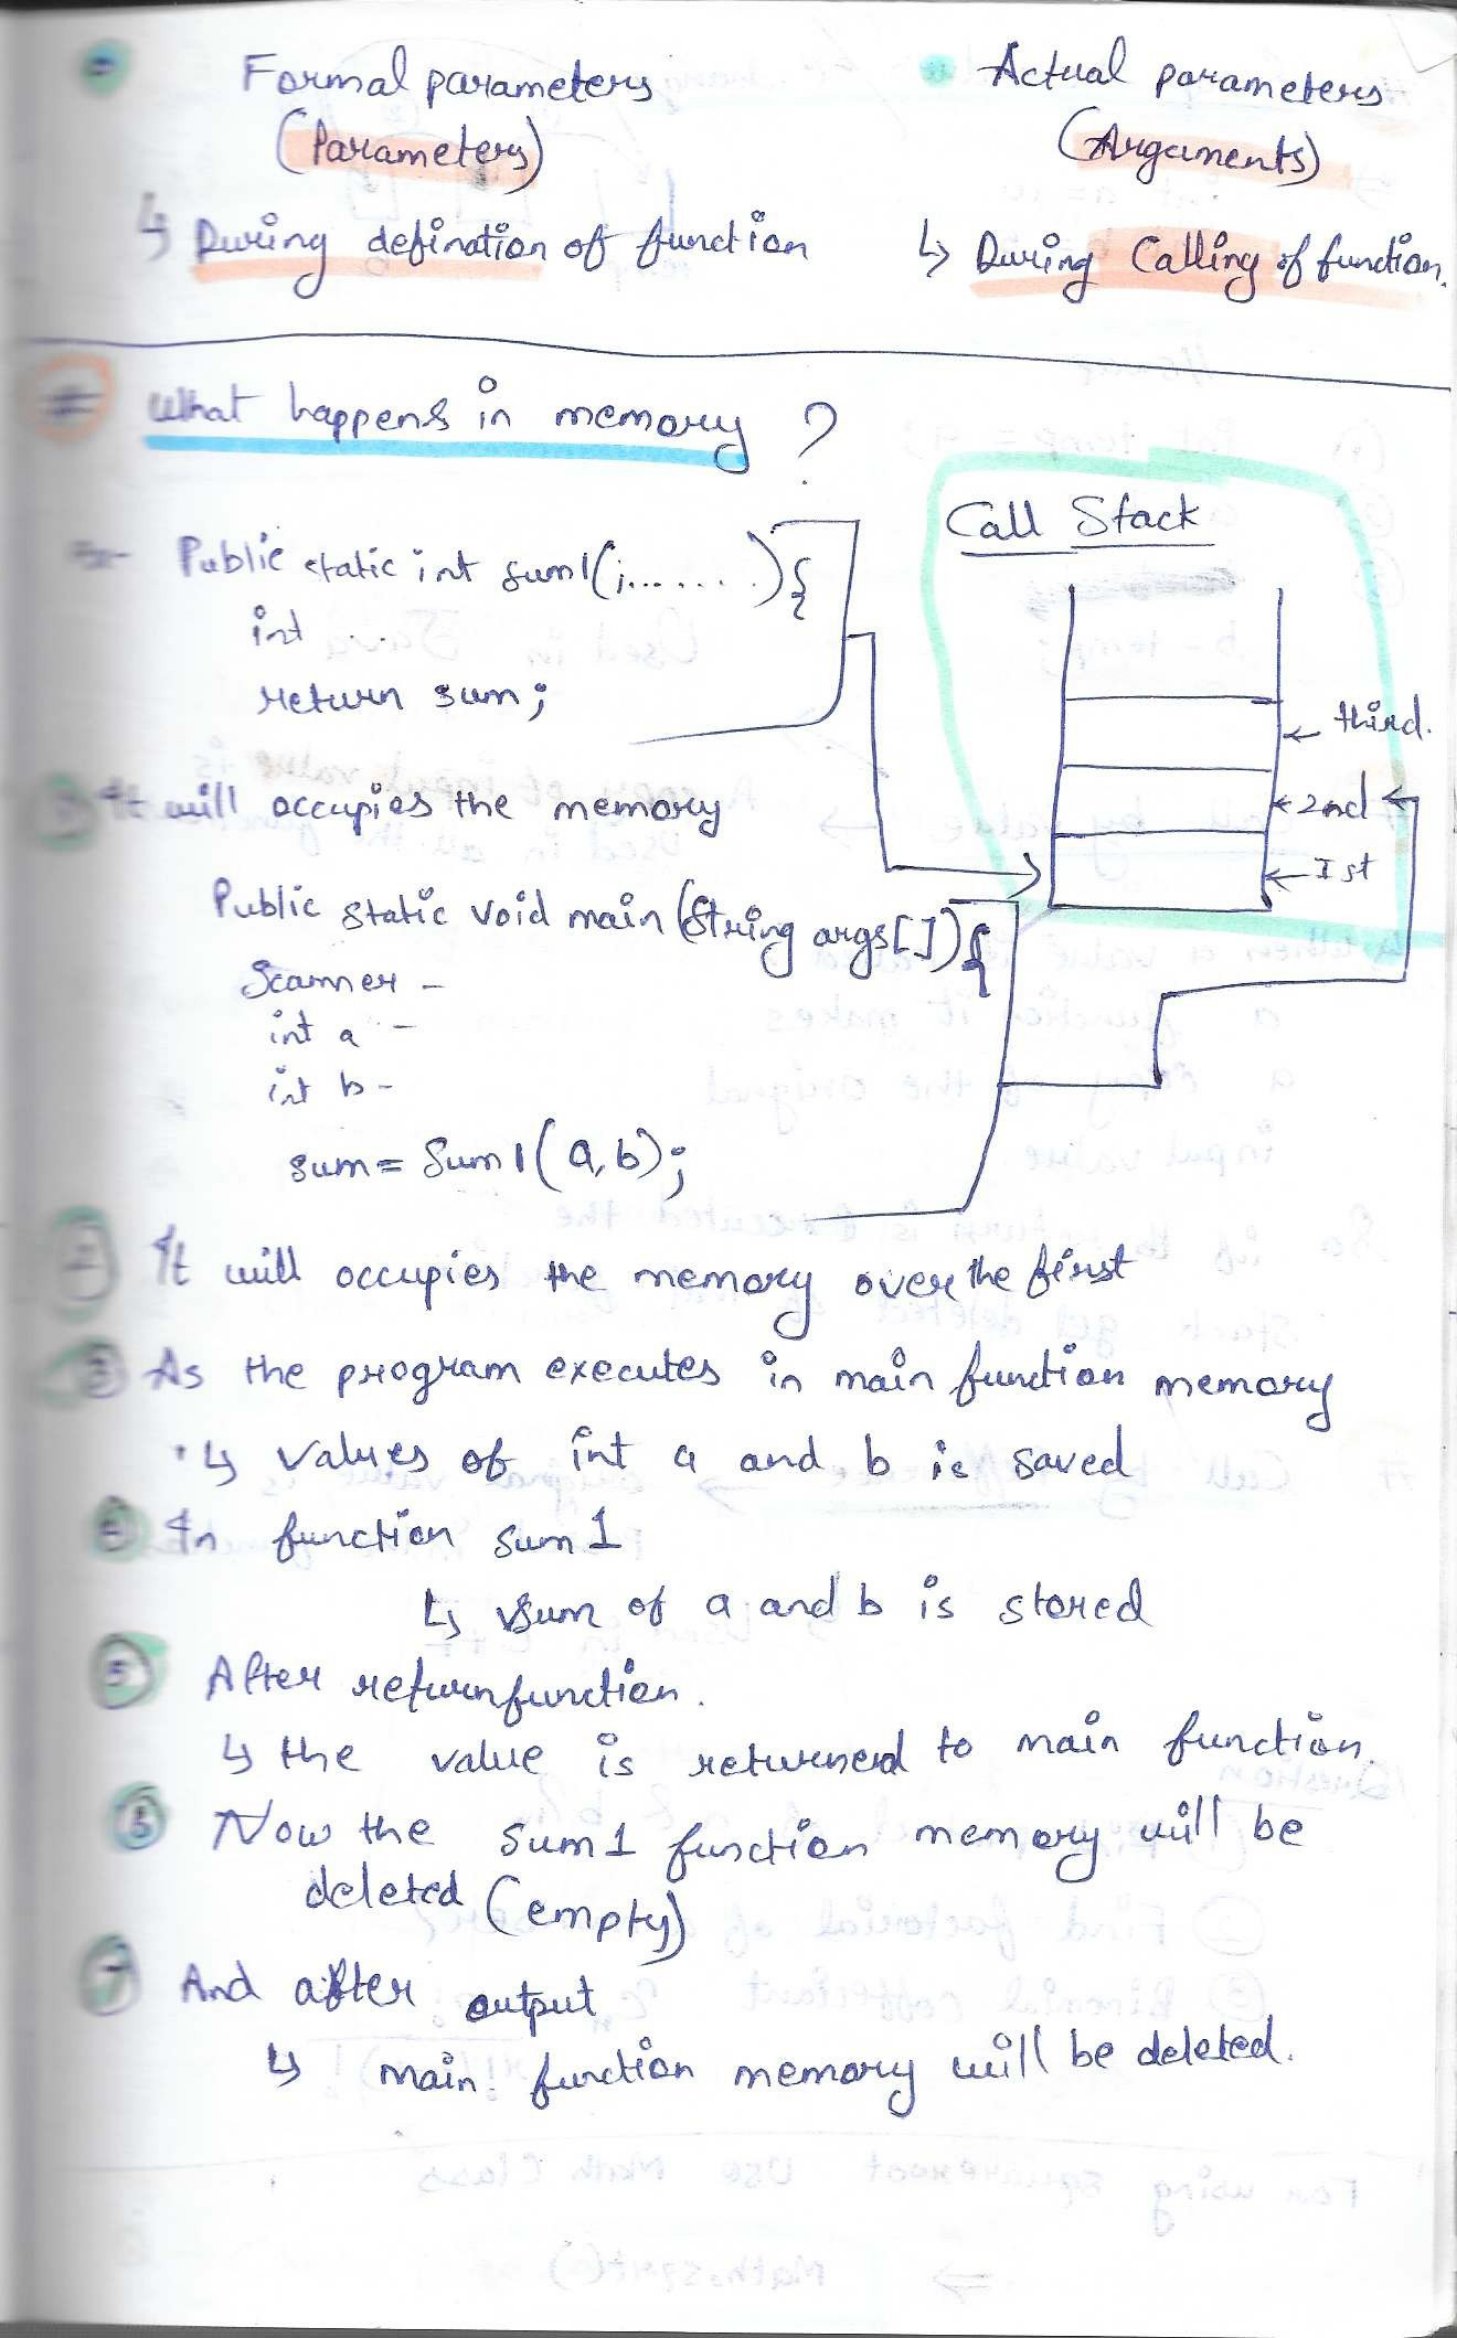 Formal parameters
Actual parameters
(Parameters)
(Arguments)
↳ During defination of function
↳ During Calling of function.
# What happens in memory ?
Call Stack
Public static int sum1(i.......){
int ..
return sum;
← third.
← 2nd ←
← Ist
It will occupies the memory
Public static void main (String args[]){
Scanner -
int a -
int b -
sum = Sum1(a,b);
2 It will occupies the memory over the first
3 As the program executes in main function memory
↳ values of int a and b is saved
In function sum1
↳ sum of a and b is stored
5 After return function.
↳ the value is returned to main function.
6 Now the sum1 function memory will be
deleted (empty)
7 And after output
↳ main function memory will be deleted.